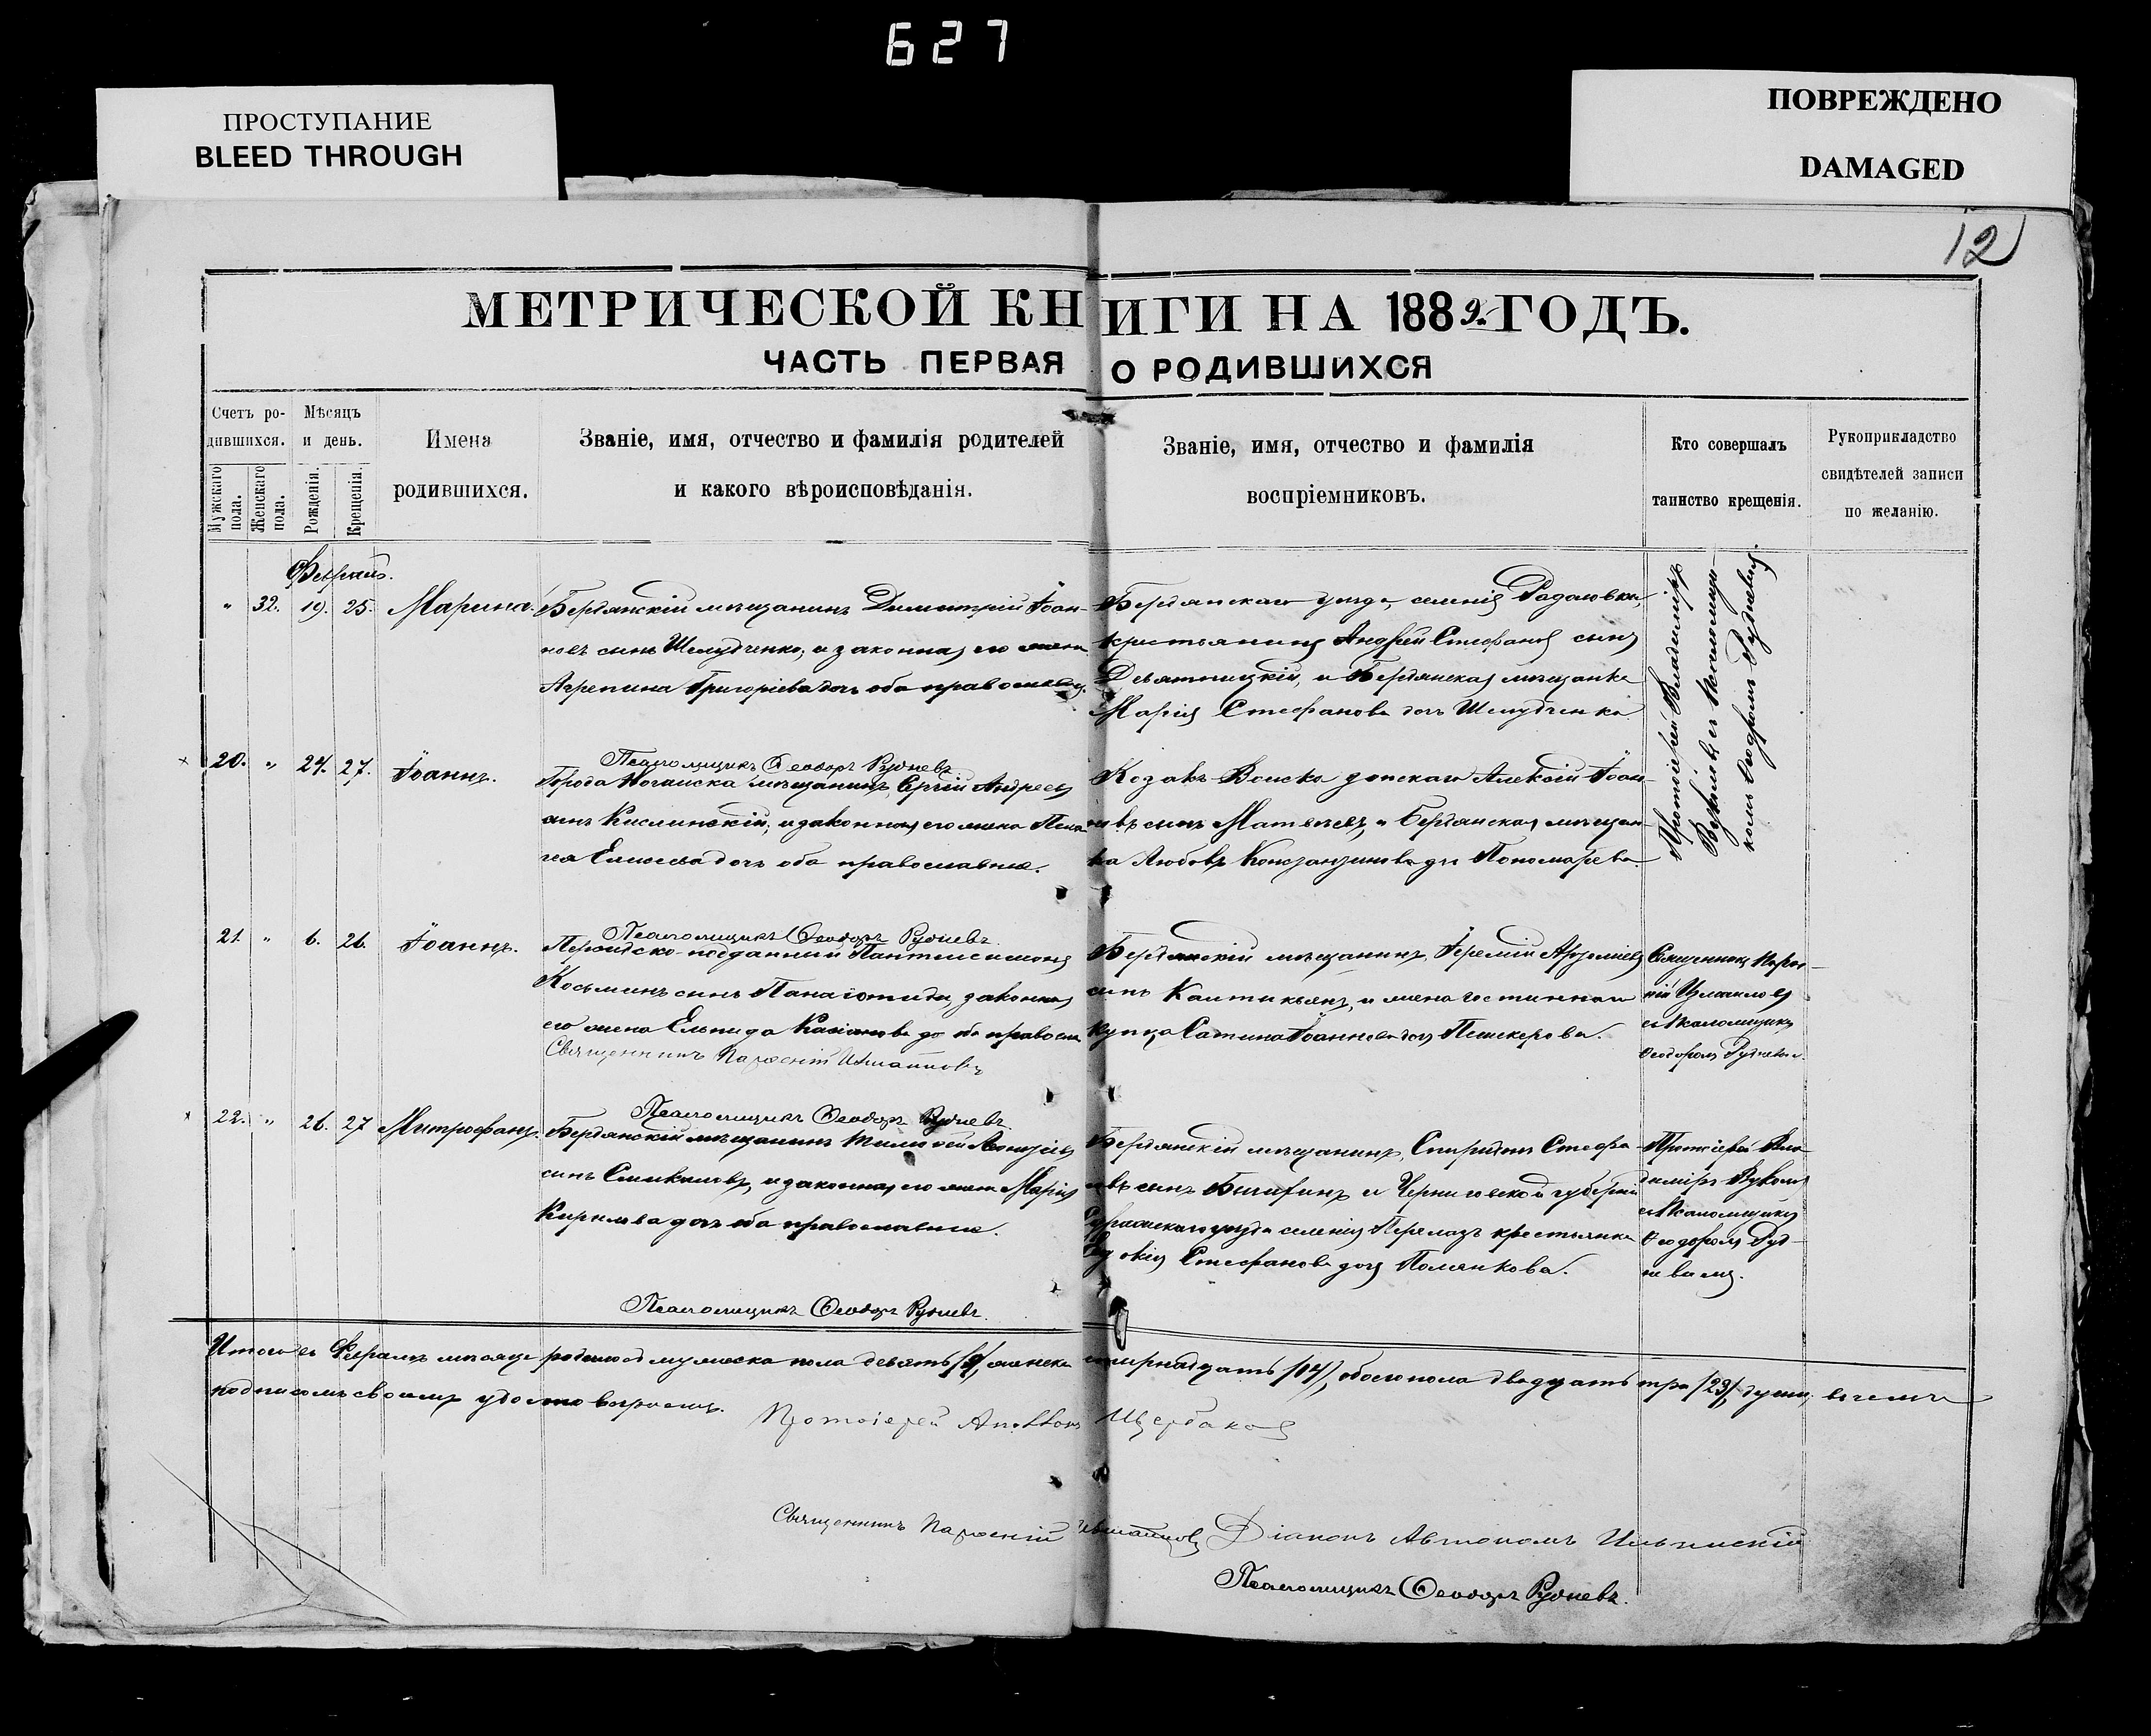 627
ПРОСТУПАНИЕ
BLEED THROUGH
ПОВРЕЖДЕНО
DAMAGED
12
МЕТРИЧЕСКОЙ КНИГИ НА 1889. ГОДЪ.
ЧАСТЬ ПЕРВАЯ О РОДИВШИХСЯ
Счетъ ро-
дившихся.
Мужскаго пола.
Женскаго пола.
Мѣсяцъ
и день.
Рожденія.
Крещенія.
Имена
родившихся.
Званіе, имя, отчество и фамилія родителей
и какого вѣроисповѣданія.
Званіе, имя, отчество и фамилія
воспріемниковъ.
Кто совершалъ
таинство крещенія.
Рукоприкладство
свидѣтелей записи
по желанію.
Февраль.
" 32. 19. 25. Марина.
Бердянскій мѣщанинъ Димитрій Іоан-
новъ сынъ Шелудченко, и законная его жена
Агрепина Григоріева дочь оба православные.
Бердянскаго уѣзда, селенія
крестьянинъ Андрей Стефановъ сынъ
Девятницкій, и Бердянская мѣщанка
Марія Стефанова дочь Шелудченко
Протоіерей Владиміръ
съ Псаломщи-
комъ Ѳеодоромъ Рудневымъ.
Псаломщикъ Ѳеодоръ Рудневъ
20. " 24. 27. Іоаннъ.
Города Ногайска мѣщанинъ, Сергій Андреевъ
сынъ Кислинскій, и законная его жена Пела-
гея дочь оба православные.
Козакъ Войска донскаго Алексій Іоан-
новъ сынъ Матвѣевъ, и Бердянская мѣщан-
ка Любовь Константинова дочь Пономарева
Псаломщикъ Ѳеодоръ Рудневъ
21. " 6. 26. Іоаннъ.
Персидско-подданный Пантелеимонъ
Косьминъ сынъ Панаіотиди, законная
его жена Ельпида
Священникъ Парѳеній Измаиловъ
Бердянскій мѣщанинъ, Іеремій
сынъ и жена гостиннаго
купца Іоаннова дочь
Священникъ Парѳе-
ній Измаиловъ
съ Псаломщикомъ
Ѳеодоромъ Рудневымъ.
Псаломщикъ Ѳеодоръ Рудневъ
22. " 26. 27 Митрофанъ.
Бердянскій мѣщанинъ Тимоѳей
сынъ и законная его жена Марія
Кирилова дочь оба православные.
Бердянскій мѣщанинъ, Спиридонъ Стефа-
новъ сынъ и Черниговской губерніи
уѣзда селенія Перелазъ крестьянка
Стефанова дочь Полянкова.
Протоіерей Вла-
диміръ
съ Псаломщикомъ
Ѳеодоромъ Руд-
невымъ.
Псаломщикъ Ѳеодоръ Рудневъ.
Итого въ Февралѣ мѣсяцѣ родилось мужеска пола девять /9/, женска четырнадцать /14/, обоего пола двадцать три /23/ души, въ чемъ
подписомъ своимъ удостовѣряемъ.
Протоіерей Аполлонъ Щербаковъ
Священникъ Парѳеній Измаиловъ
Діаконъ Автономъ Ильинскій
Псаломщикъ Ѳеодоръ Рудневъ.